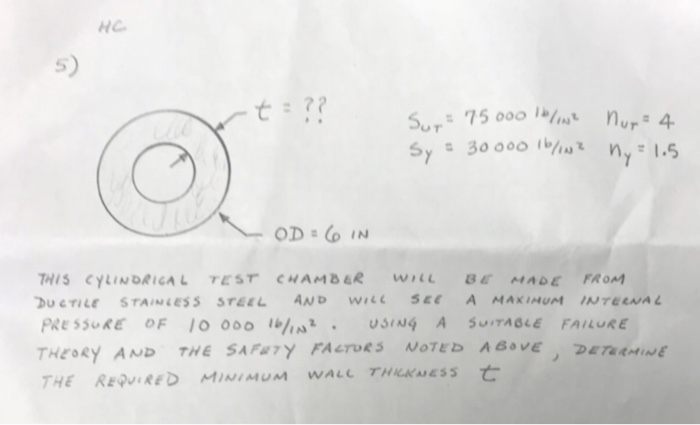 HC
5)
t = ??
Sut = 75 000 lb/in² nut = 4
Sy = 30 000 lb/in² ny = 1.5
OD = 6 IN
THIS CYLINDRICAL TEST CHAMBER WILL BE MADE FROM
DUCTILE STAINLESS STEEL AND WILL SEE A MAXIMUM INTERNAL
PRESSURE OF 10 000 lb/in². USING A SUITABLE FAILURE
THEORY AND THE SAFETY FACTORS NOTED ABOVE, DETERMINE
THE REQUIRED MINIMUM WALL THICKNESS t